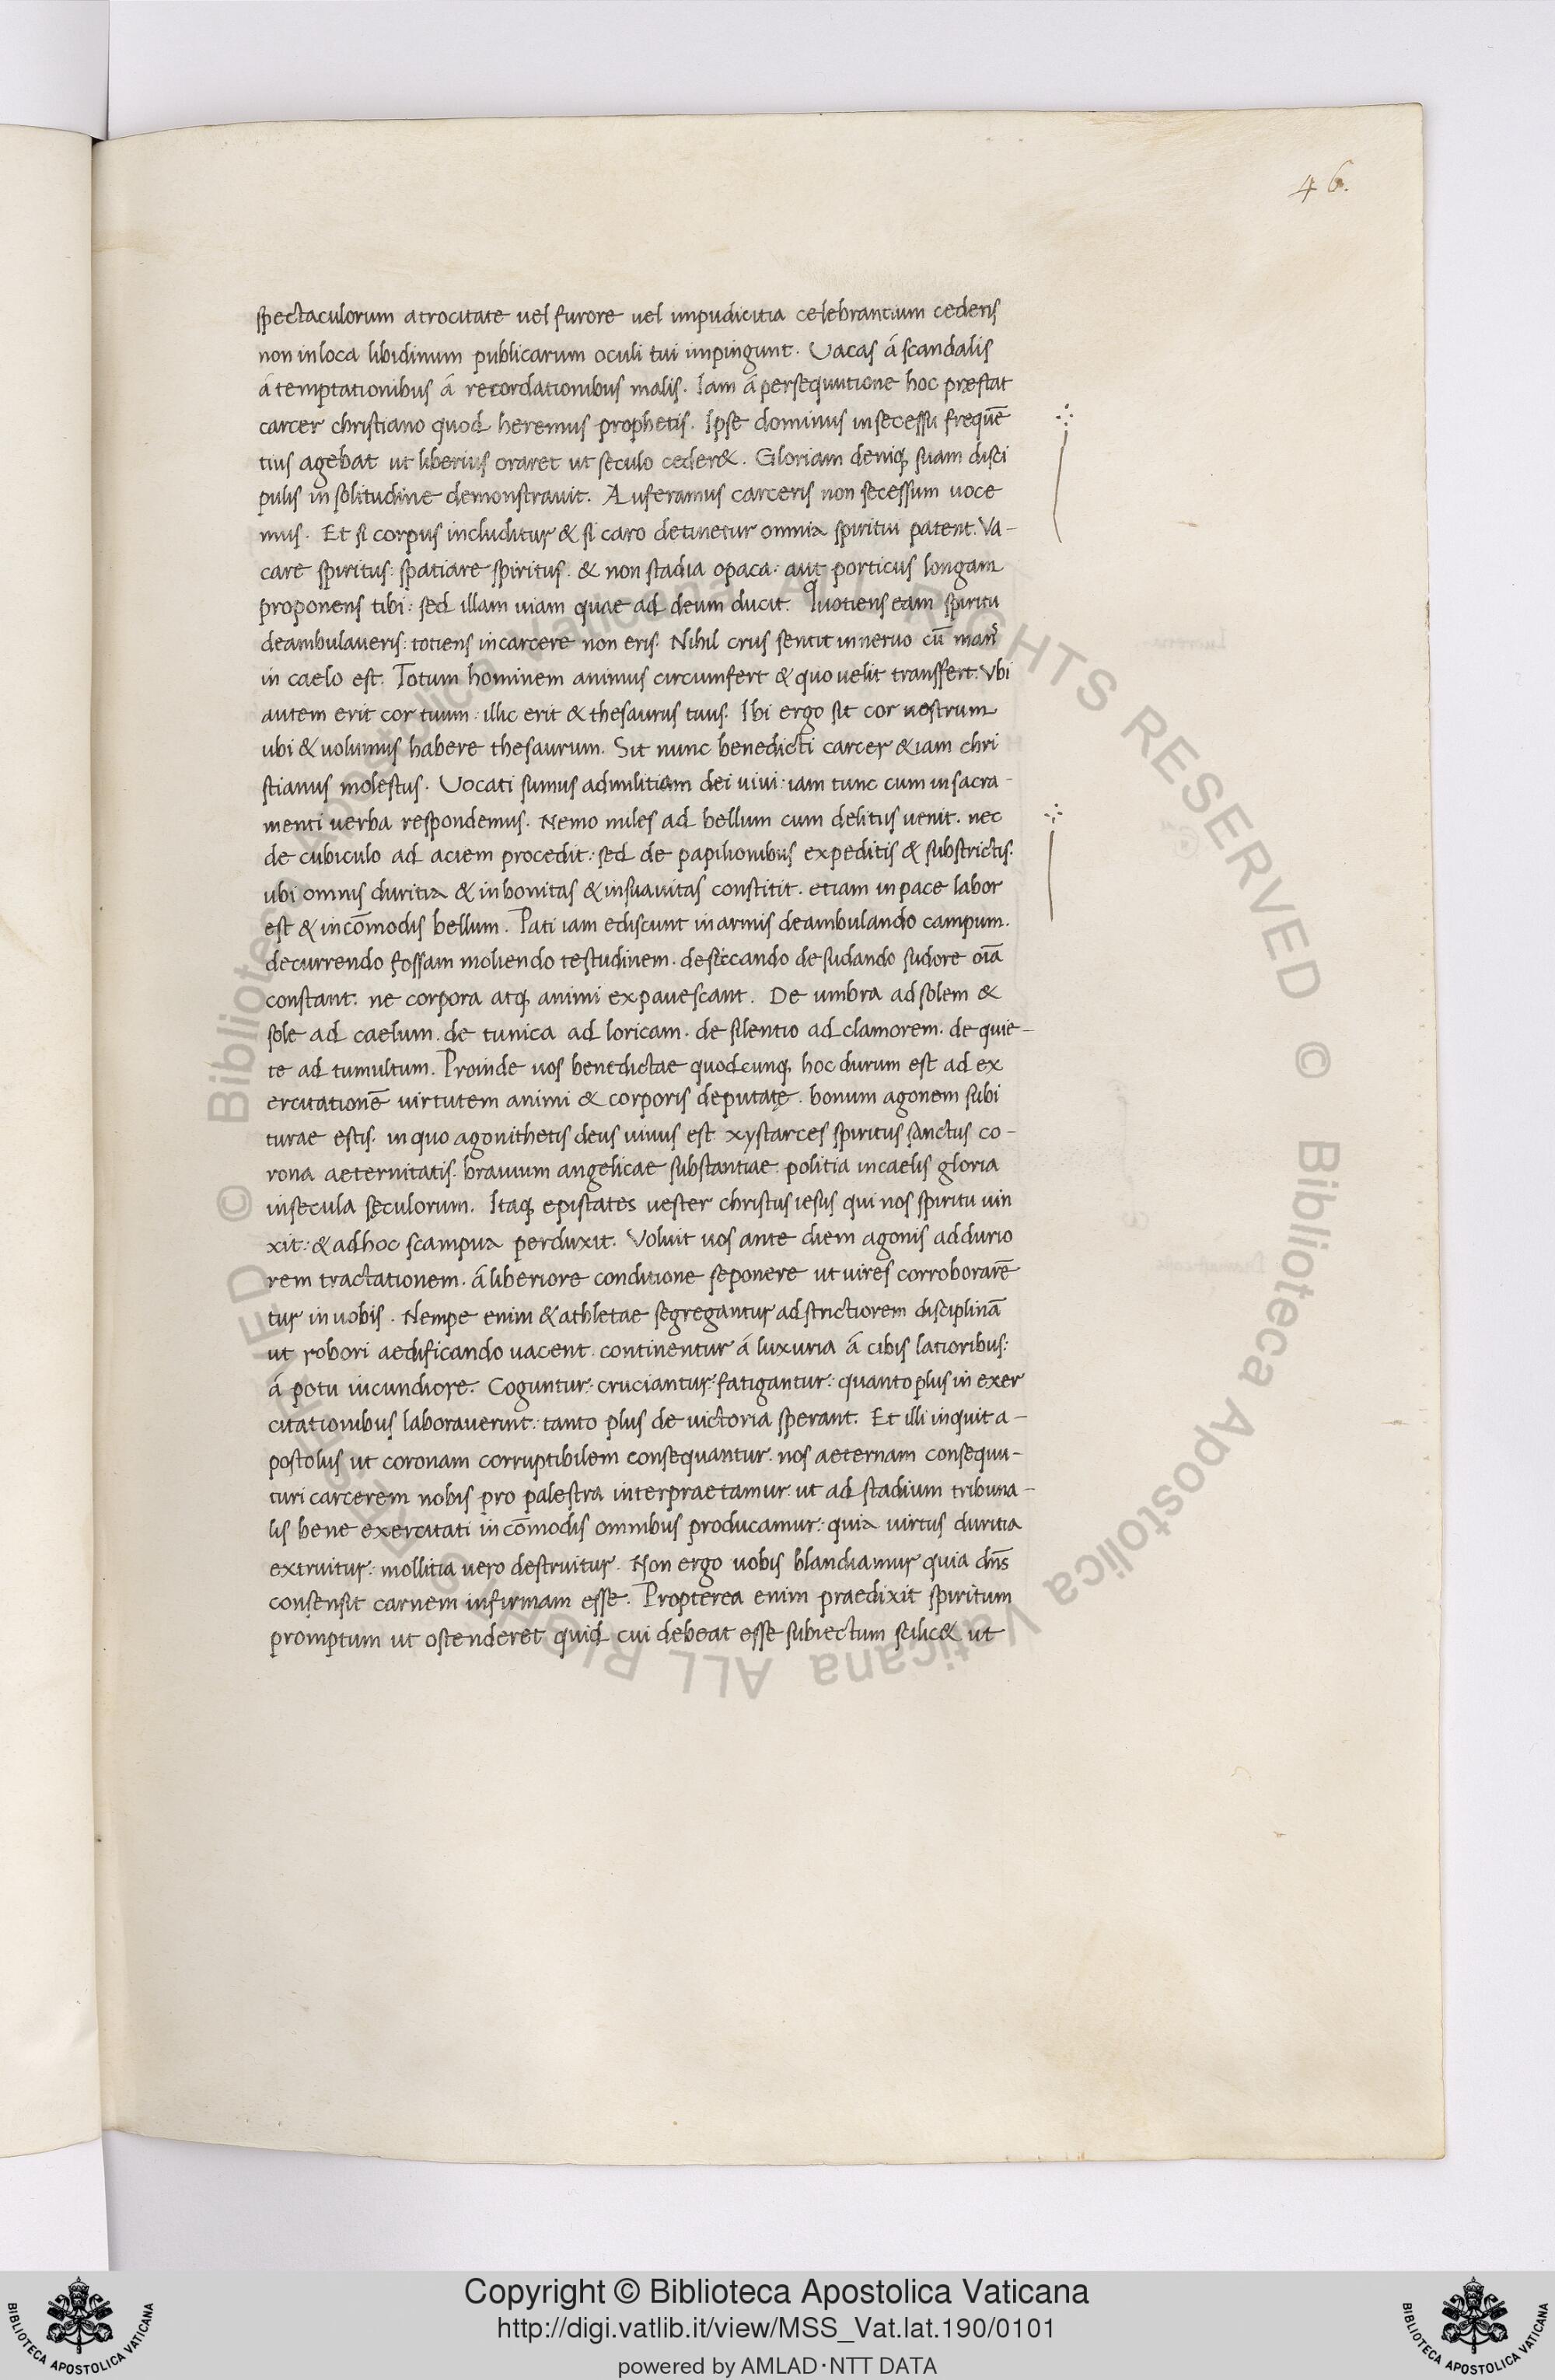 46.
spectaculorum atrocitate uel furore uel impudicitia celebrantium cederis
non in loca libidinum publicarum oculi tui impingunt. Uacas á scandalis
á temptationibus á recordationibus malis. Iam á persequutione hoc præstat
carcer christiano quod heremus prophetis. Ipse dominus in secessu frequē
tius agebat ut liberius oraret ut seculo ceder&. Gloriam deniq; suam disci
pulis in solitudine demonstrauit. Auferamus carceris non secessum uoce
mus. Et si corpus includitur & si caro detinetur omnia spiritui patent. Va-
care spiritus: spatiare spiritus. & non stadia opaca: aut porticus longam
proponens tibi: sed illam uiam quae ad deum ducit. Quotiens eam spiritu
deambulaueris: totiens in carcere non eris. Nihil crus sentit in neruo cū
in caelo est. Totum hominem animus circumfert & quo uelit transfert. Vbi
autem erit cor tuum: illic erit & thesaurus tuus. Ibi ergo sit cor nostrum
ubi & uolumus habere thesaurum. Sit nunc benedicti carcer &iam chri
stianus molestus. Uocati sumus ad militiam dei uiui: iam tunc cum in sacra-
menti uerba respondemus. Nemo miles ad bellum cum delitiis uenit. nec
de cubiculo ad aciem procedit: sed de papilionibus expeditis & substrictis.
ubi omnis duritia & inbonitas & insuauitas constitit. etiam in pace labor
est & incōmodis bellum. Pati iam ediscunt in armis deambulando campum.
decurrendo fossam moliendo testudinem. desiccando desudando sudore oīa
constant: ne corpora atq; animi expauescant. De umbra ad solem &
sole ad caelum. de tunica ad loricam. de silentio ad clamorem. de quie-
te ad tumultum. Proinde uos benedictae quodcunq; hoc durum est ad ex
ercitationē uirtutem animi & corporis deputate. bonum agonem subi
turae estis. in quo agonithetis deus uiuus est xystarces spiritus sanctus co-
rona aeternitatis. brauium angelicae substantiae. politia in caelis gloria
in secula seculorum. Itaq; epistates uester christus iesus qui nos spiritu uin
xit: & ad hoc scampua perduxit. Voluit uos ante diem agonis ad durio
rem tractationem. á liberiore conditione seponere ut uires corroborarē
tur in uobis. Nempe enim & athletae segregantur ad strictiorem disciplinā
ut robori aedificando uacent. continentur á luxuria á cibis latioribus:
á potu iucundiore. Coguntur: cruciantur: fatigantur: quanto plus in exer
citationibus laborauerint: tanto plus de uictoria sperant. Et illi inquit a-
postolus ut coronam corruptibilem consequantur. nos aeternam consequu-
turi carcerem nobis pro palestra interpraetamur. ut ad stadium tribuna-
lis bene exercitati incōmodis omnibus producamur: quia uirtus duritia
extruitur: mollitia uero destruitur. Non ergo uobis blandiamur quia dn̄s
consensit carnem infirmam esse. Propterea enim praedixit spiritum
promptum ut ostenderet quid cui debeat esse subiectum scilic& ut
Copyright © Biblioteca Apostolica Vaticana
http://digi.vatlib.it/view/MSS_Vat.lat.190/0101
powered by AMLAD·NTT DATA